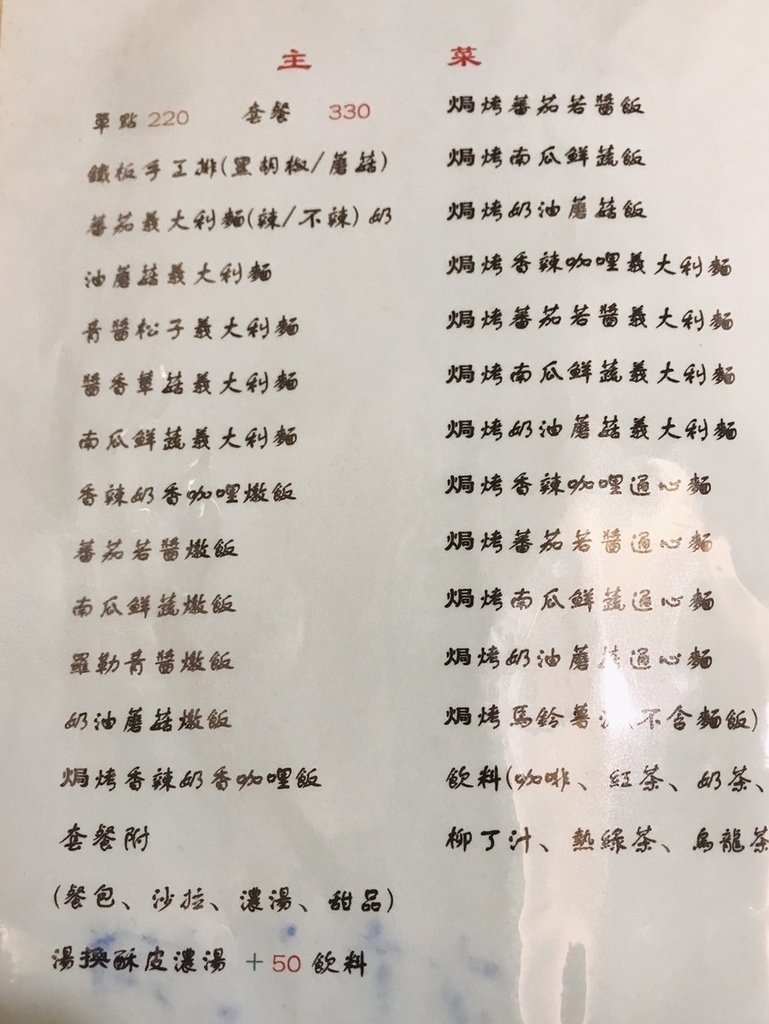 主 菜
單點 220 套餐 330
鐵板手工排(黑胡椒/蘑菇)
蕃茄義大利麵(辣/不辣) 奶
油蘑菇義大利麵
青醬松子義大利麵
醬香蕈菇義大利麵
南瓜鮮蔬義大利麵
香辣奶香咖哩燉飯
蕃茄若醬燉飯
南瓜鮮蔬燉飯
羅勒青醬燉飯
奶油蘑菇燉飯
焗烤香辣奶香咖哩飯
套餐附
(餐包、沙拉、濃湯、甜品)
湯換酥皮濃湯 +50 飲料
焗烤蕃茄若醬飯
焗烤南瓜鮮蔬飯
焗烤奶油蘑菇飯
焗烤香辣咖哩義大利麵
焗烤蕃茄若醬義大利麵
焗烤南瓜鮮蔬義大利麵
焗烤奶油蘑菇義大利麵
焗烤香辣咖哩通心麵
焗烤蕃茄若醬通心麵
焗烤南瓜鮮蔬通心麵
焗烤奶油蘑菇通心麵
焗烤馬鈴薯(不含麵飯)
飲料(咖啡、紅茶、奶茶、
柳丁汁、熱綠茶、烏龍茶